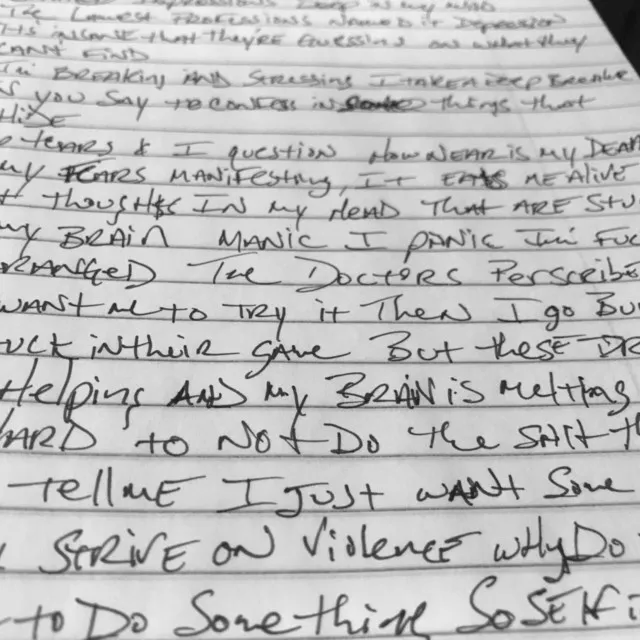 DEEP IN my MIND
Lowest Professions Named it Depression
its insane that they're guessing on what they
CAN'T FIND
I'm BREAKING AND Stressing I TAKE A Deep Breathe
you SAY to CONFESS in things that
HIDE
TEARS & I question How NEAR is my DEATH
my FEARS MANIFESTING, It EATS ME ALIVE
thoughts IN my HEAD THAT ARE
my BRAIN MANIC I PANIC I'm
The DOCTORS Perscribe
WANT me to TRY it Then I go
in their game But these
Helping AND my BRAIN is melting
HARD to Not Do the SHIT
Tell ME I JUST WANT Some
STRIVE ON Violence why Do
to Do Something So